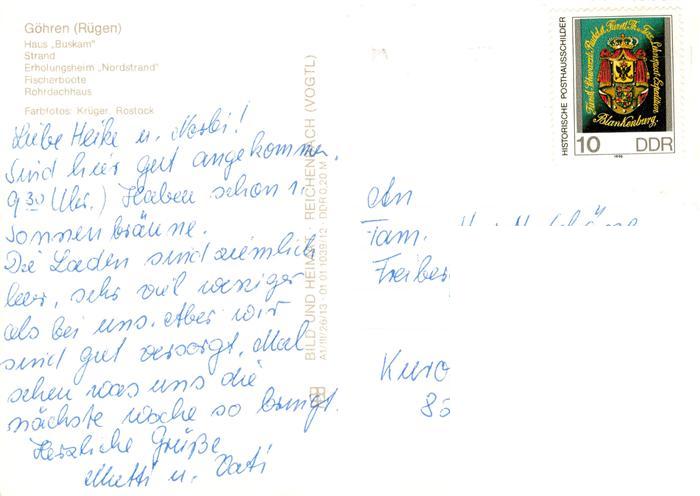 Göhren (Rügen)
Haus „Buskam"
Strand
Erholungsheim „Nordstrand"
Fischerboote
Rohrdachhaus
Farbfotos: Krüger, Rostock
Liebe Heike u. Norbi!
Sind hier gut angekommen.
9 30 (Uhr.) Haben schon 1.
Sonnenbräune.
Die Läden sind ziemlich
leer, sehr viel weniger
als bei uns. Aber wir
sind gut versorgt. Mal
sehen was uns die
nächste Woche so bringt.
Herzliche Grüße
Mutti u. Vati
BILD UND HEIMAT REICHENBACH (VOGTL)
A1/III/26/13 01 01 1039/12 DDR 0,20 M
HISTORISCHE POSTHAUSSCHILDER
Blankenburg.
10 DDR
1990
An
Fam.
Freiber
Kuro